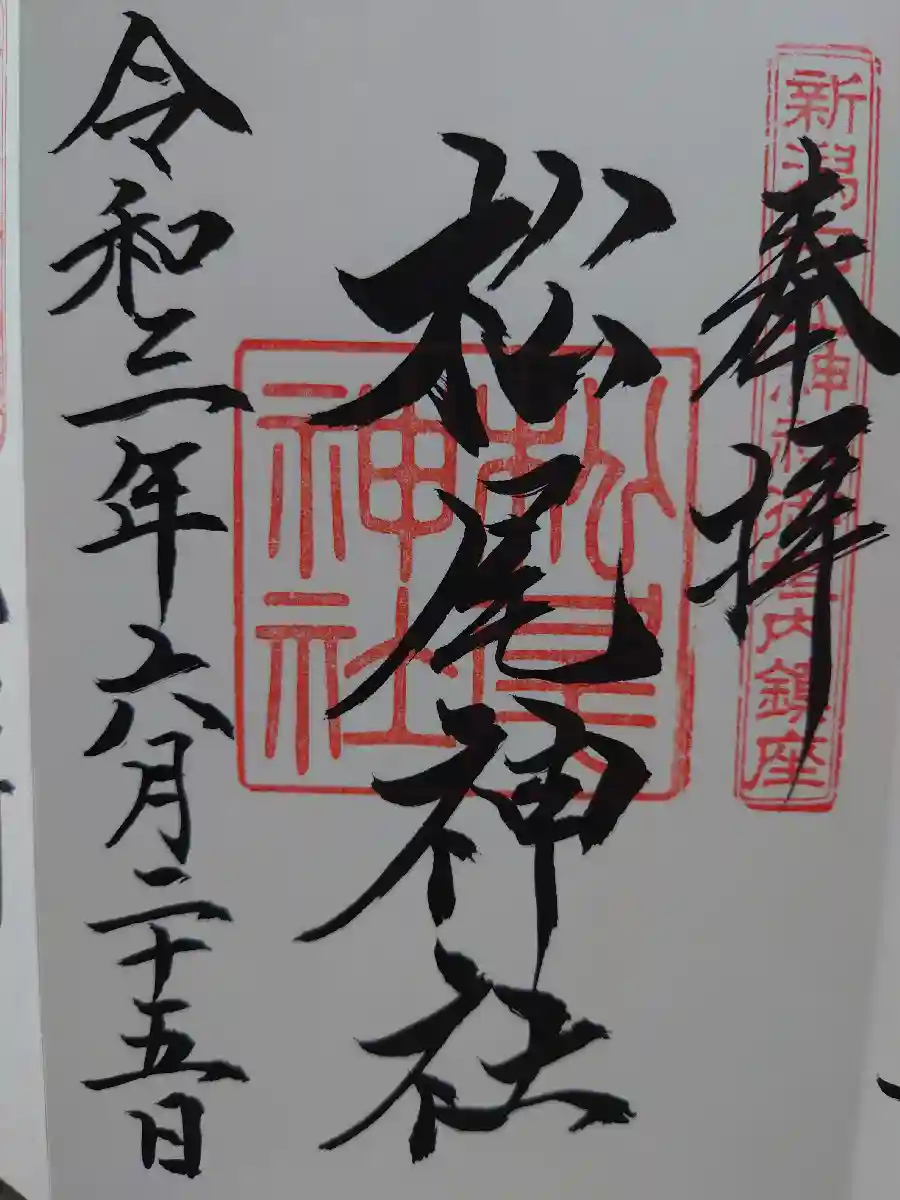 奉拝
松尾神社
令和三年六月二十五日
松尾
神社
新潟
神社境内鎮座